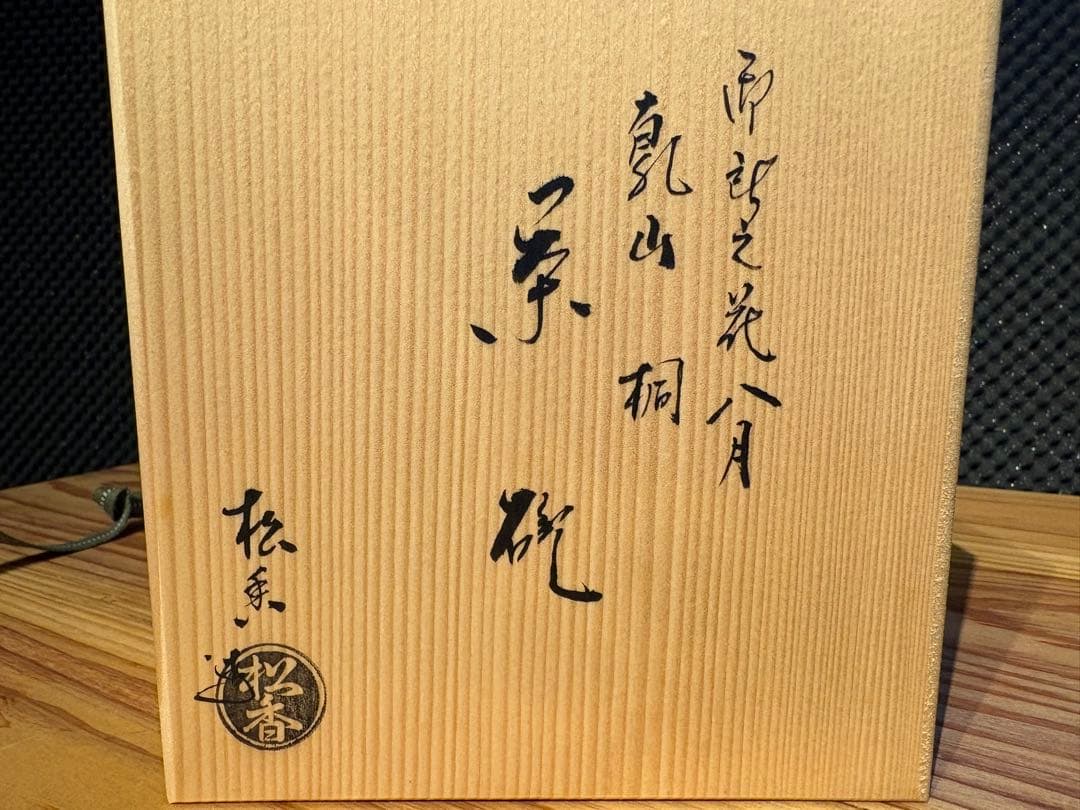 之花 八月
乾山 桐
茶碗
松香 造
松香